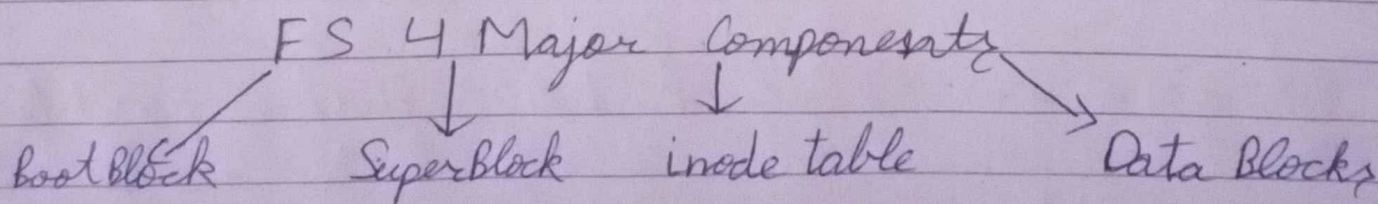 FS 4 Major Components
Boot Block SuperBlock inode table Data Blocks